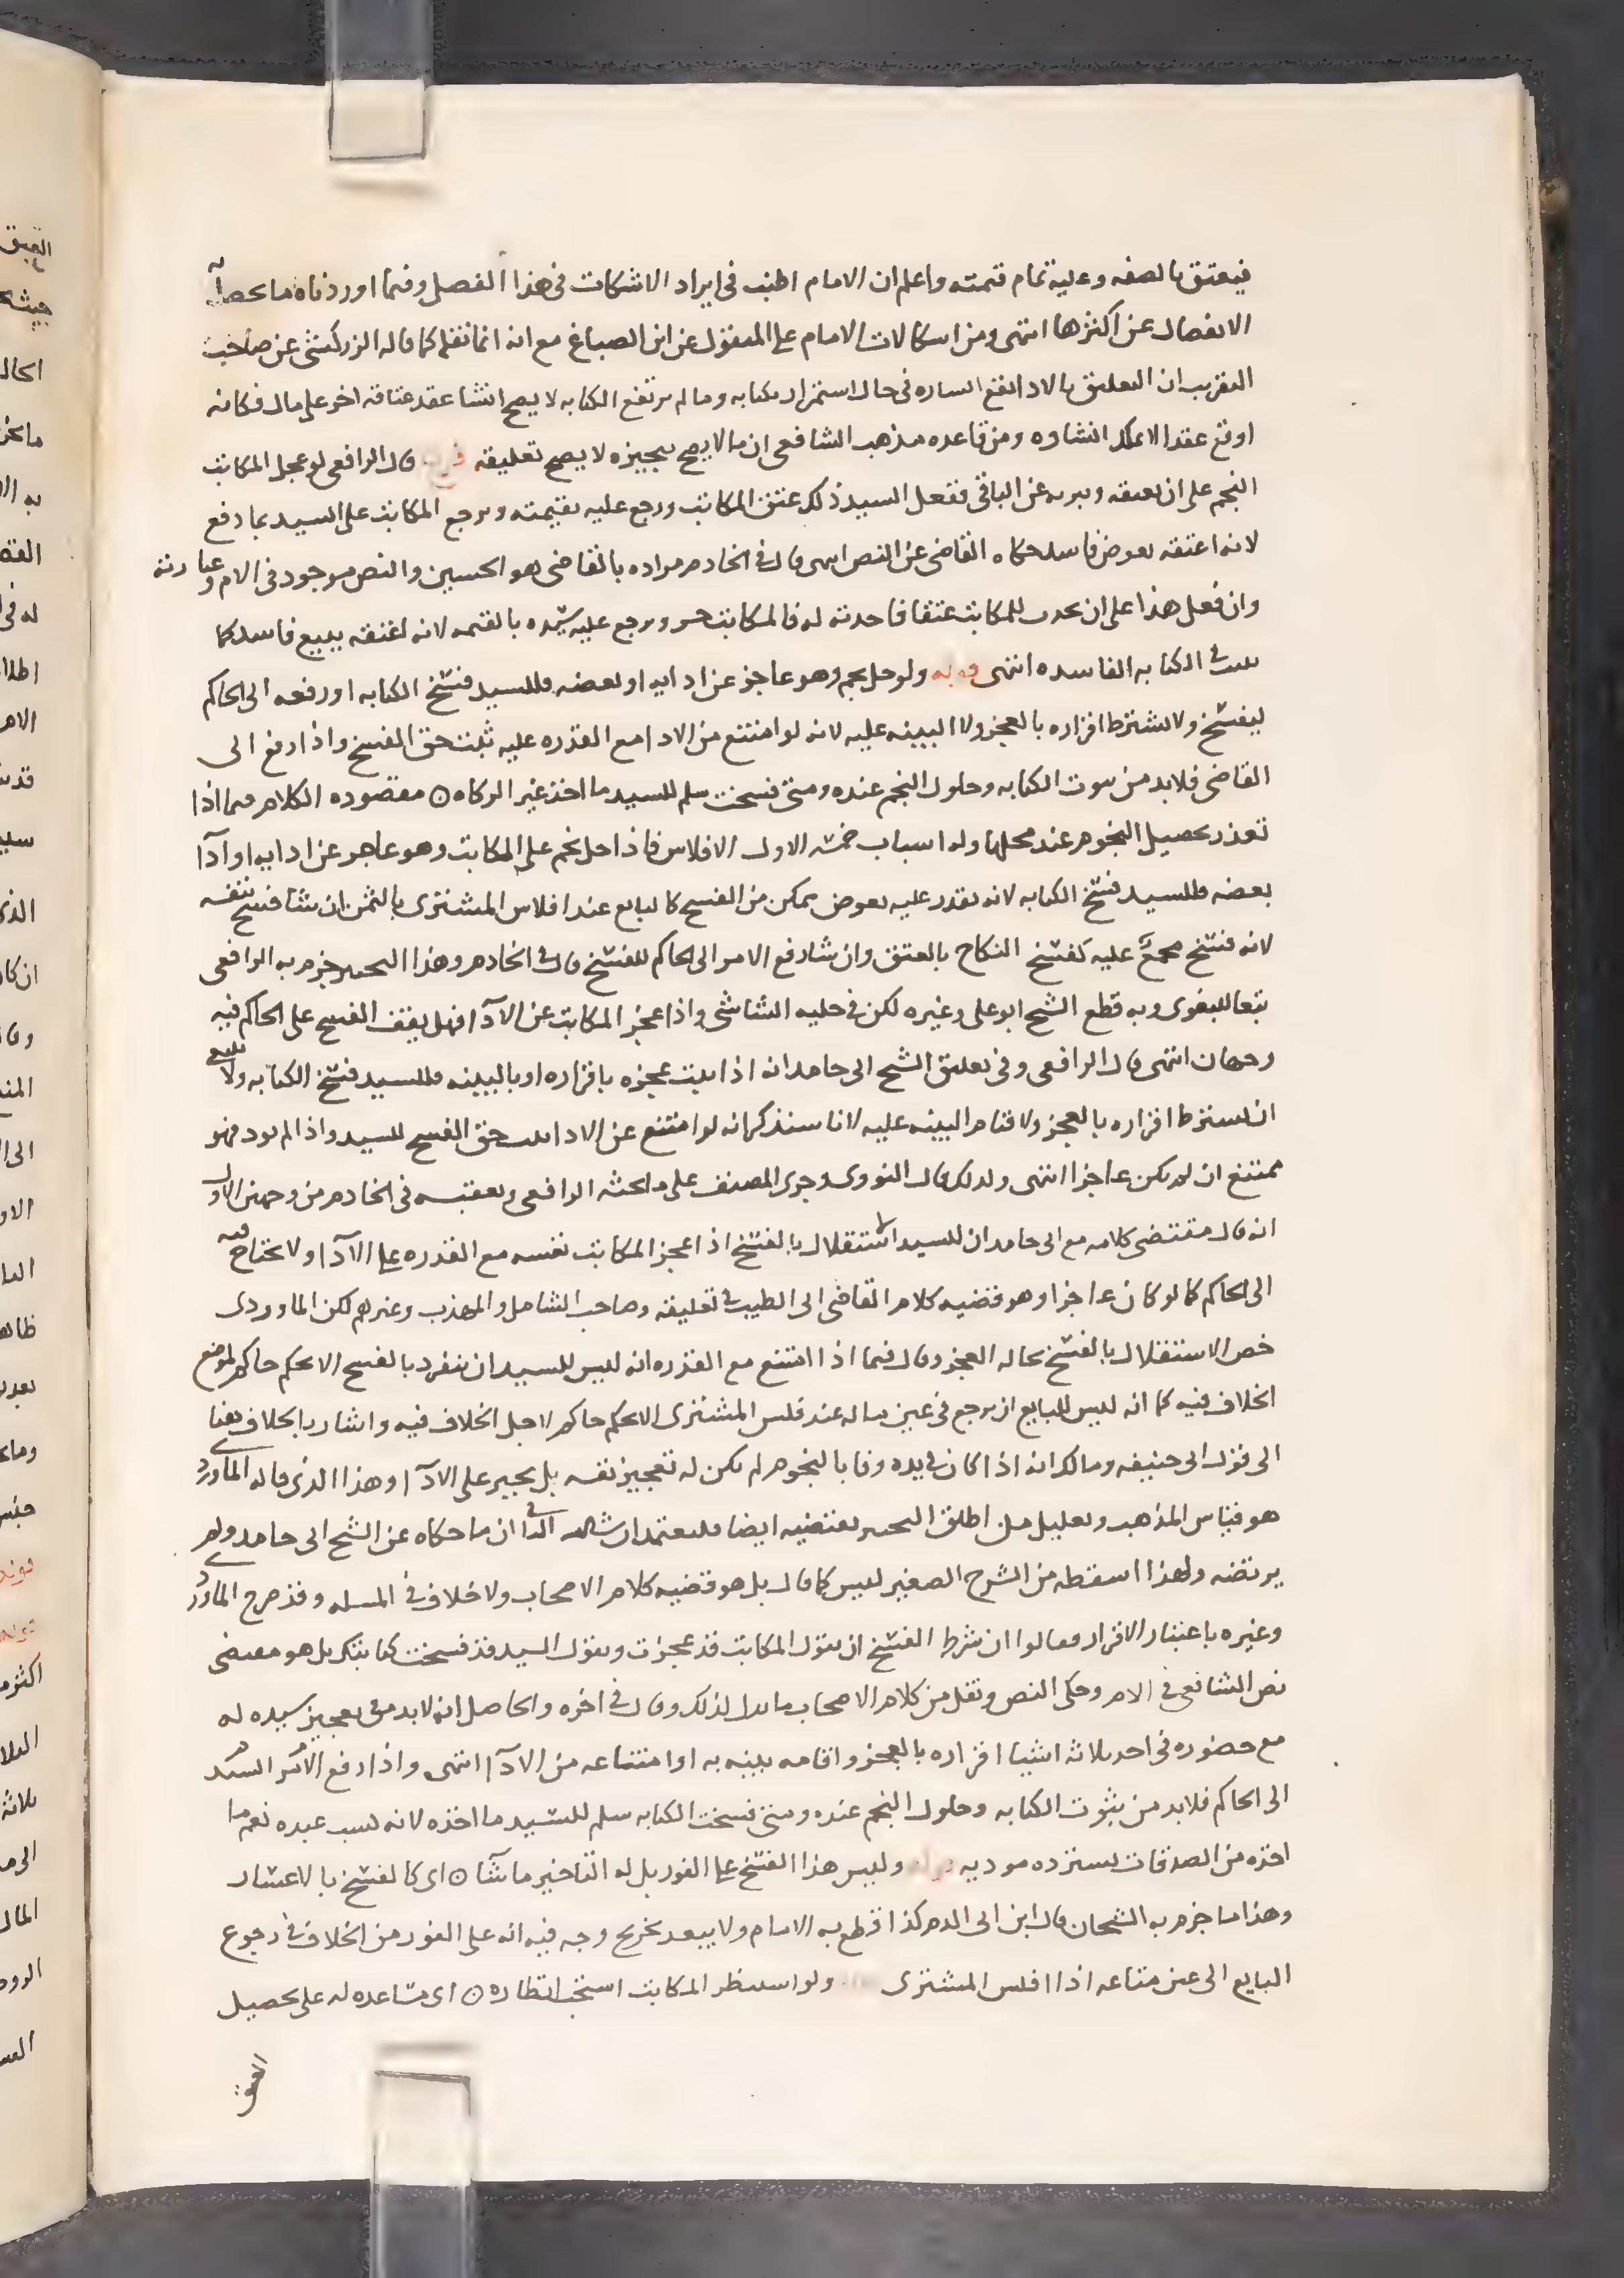 فيعتق بالصفه وعليه تمام قيمته واعلم ان الامام اطنب في ايراد الاشكالات في هذا الفصل وفيما اوردناه ما يحصل به
الانفصال عن اكثرها انتهى ومن اشكالات الامام على المنقول عن ابن الصباغ مع انه انما نقله كما قاله الزركشي عن صاحب
التقريب ان التعليق بالاداء انشاوه في حال استمرار كتابه وما لم ترتفع الكتابه لا يصح انشا عقد عتاقه اخر على مال فكانه
اوقع عقدا لا يملك انشاوه ومن قاعده مذهب الشافعي ان ما لا يصح تنجيزه لا يصح تعليقه فرع قال الرافعي لو عجل المكاتب
النجم على ان يعتقه ويبريه عن الباقي ففعل السيد ذلك عتق المكاتب ورجع عليه بقيمته ويرجع المكاتب على السيد بما دفع
لانه اعتقه بعوض فاسد حكاه القاضي عن النص انتهى قال في الخادم مراده بالقاضي هو الحسين والنص موجود في الام وعبارته
وان فعل هذا على ان يحدث للمكاتب عتقا فاحدثه له فالمكاتب حر ويرجع عليه سيده بالقيمه لانه اعتقه ببيع فاسد كما
قلت في الكتابه الفاسده انتهى قوله ولو حل نجم وهو عاجز عن ادايه او بعضه فللسيد فسخ الكتابه او رفعه الى الحاكم
ليفسخ ولا يشترط اقراره بالعجز ولا البينه عليه لانه لو امتنع من الاداء مع القدره عليه ثبت حق الفسخ واذا رفع الى
القاضي فلا بد من ثبوت الكتابه وحلول النجم عنده ومتى فسخت سلم للسيد ما اخذ غير الزكاه ○ مقصوده الكلام فيما اذا
تعذر تحصيل النجوم عند محلها وله اسباب خمسه الاول الافلاس فاذا حل نجم على المكاتب وهو عاجز عن ادايه او ادآ
بعضه فللسيد فسخ الكتابه لانه تعذر عليه بعوض يمكن من الفسخ كالبايع عند افلاس المشتري بالثمن ان شا فسخ بنفسه
لانه فسخ مجمع عليه كفسخ النكاح بالعتق وان شا رفع الامر الى الحاكم للفسخ قال في الخادم وهذا التخيير جزم به الرافعي
تبعا للبغوي وبه قطع الشيخ ابو علي وغيره لكن في حليه الشاشي واذا عجز المكاتب عن الادآ فهل يقف الفسخ على الحاكم فيه
وجهان انتهى قال الرافعي وفي تعليق الشيخ ابي حامد انه اذا ثبت عجزه باقراره او بالبينه فللسيد فسخ الكتابه ولا ينبغي
ان يشترط اقراره بالعجز ولا قيام البينه عليه لانا سنذكر انه لو امتنع عن الاداء ثبت حق الفسخ للسيد واذا لم يود فهو
ممتنع ان لم يكن عاجزا انتهى ولذلك قال النووي وجرى المصنف على ما بحثه الرافعي وتعقبه في الخادم من وجهين الاول
انه قال مقتضى كلامه مع ابي حامد ان للسيد الاستقلال بالفسخ اذا عجز المكاتب نفسه مع القدره على الادآ ولا يحتاج فيه
الى الحاكم كما لو كان عاجزا وهو قضيه كلام القاضي ابي الطيب في تعليقه وصاحب الشامل والمهذب وغيرهم لكن الماوردي
خص الاستقلال بالفسخ بحاله العجز وقال فيما اذا امتنع مع القدره انه ليس للسيد ان ينفرد بالفسخ الا بحكم حاكم لموضع
الخلاف فيه كما انه ليس للبايع ان يرجع في عين ماله عند فلس المشتري الا بحكم حاكم لاجل الخلاف فيه واشار بالخلاف هنا
الى قول ابي حنيفه ومالك انه اذا كان في يده وفا بالنجوم لم يكن له تعجيز نفسه بل يجبر على الادآ وهذا الذي قاله الماوردي
هو قياس المذهب وتعليل من اطلق التخيير يقتضيه ايضا فليعتمد الثاني ان ما حكاه عن الشيخ ابي حامد ولم
يرتضه ولهذا اسقطه من الشرح الصغير ليس كما قال بل هو قضيه كلام الاصحاب ولا خلاف في المسله وقد صرح الماوردي
وغيره باعتبار الاقرار فقالوا ان شرط الفسخ ان يقول المكاتب قد عجزت ويقول السيد قد فسخت كتابتك بل هو مقتضى
نص الشافعي في الام وحكى النص ونقل من كلام الاصحاب ما يدل لذلك وقال في اخره والحاصل انه لا بد في تعجيز سيده له
مع حضوره في احد ثلاثه اشيا اقراره بالعجز واقامه بينه به او امتناعه من الادآ انتهى واذا رفع الامر السيد
الى الحاكم فلا بد من ثبوت الكتابه وحلول النجم عنده ومتى فسخت الكتابه سلم للسيد ما اخذه لانه كسب عبده نعم ما
اخذه من الصدقات يسترده موديه قوله وليس هذا الفسخ على الفور بل له التاخير ما شآ ○ اي كالفسخ بالاعسار
وهذا ما جزم به الشيخان قال ابن ابي الدم كذا قطع به الامام ولا يبعد تخريج وجه فيه انه على الفور من الخلاف في رجوع
البايع الى عين متاعه اذا افلس المشتري ولو استنظر المكاتب استحب انظاره ○ اي مساعده له على تحصيل
العتق